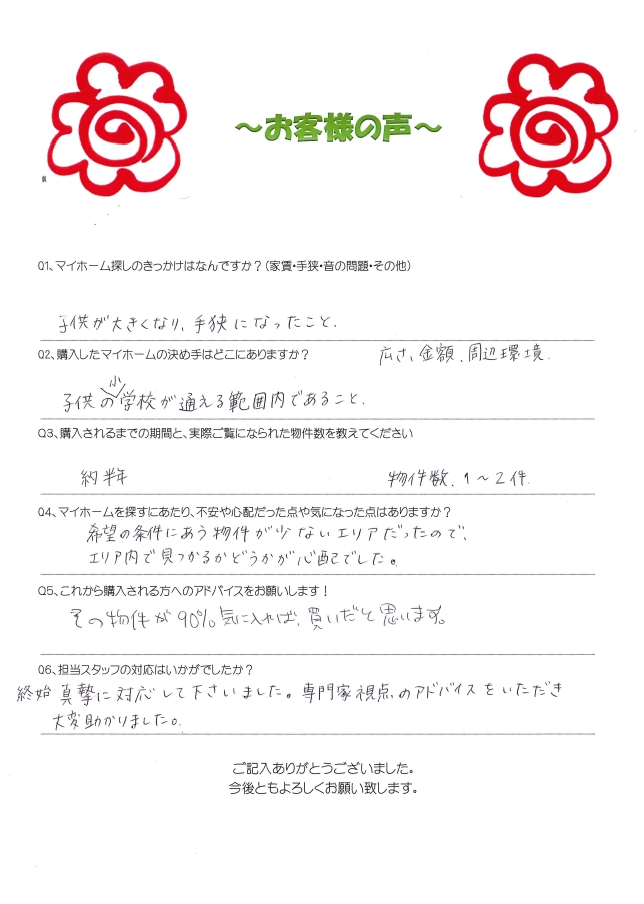 ～お客様の声～
Q1、マイホーム探しのきっかけはなんですか？（家賃・手狭・音の問題・その他）
子供が大きくなり、手狭になったこと.
Q2、購入したマイホームの決め手はどこにありますか？
広さ、金額、周辺環境.
小
子供の学校が通える範囲内であること.
Q3、購入されるまでの期間と、実際ご覧になられた物件数を教えてください
約半年
物件数、1～2件.
Q4、マイホームを探すにあたり、不安や心配だった点や気になった点はありますか？
希望の条件にあう物件が少ないエリアだったので、
エリア内で見つかるかどうかが心配でした。
Q5、これから購入される方へのアドバイスをお願いします！
その物件が90%気に入れば、買いだと思います。
Q6、担当スタッフの対応はいかがでしたか？
終始真摯に対応して下さいました。専門家視点のアドバイスをいただき
大変助かりました。
ご記入ありがとうございました。
今後ともよろしくお願い致します。